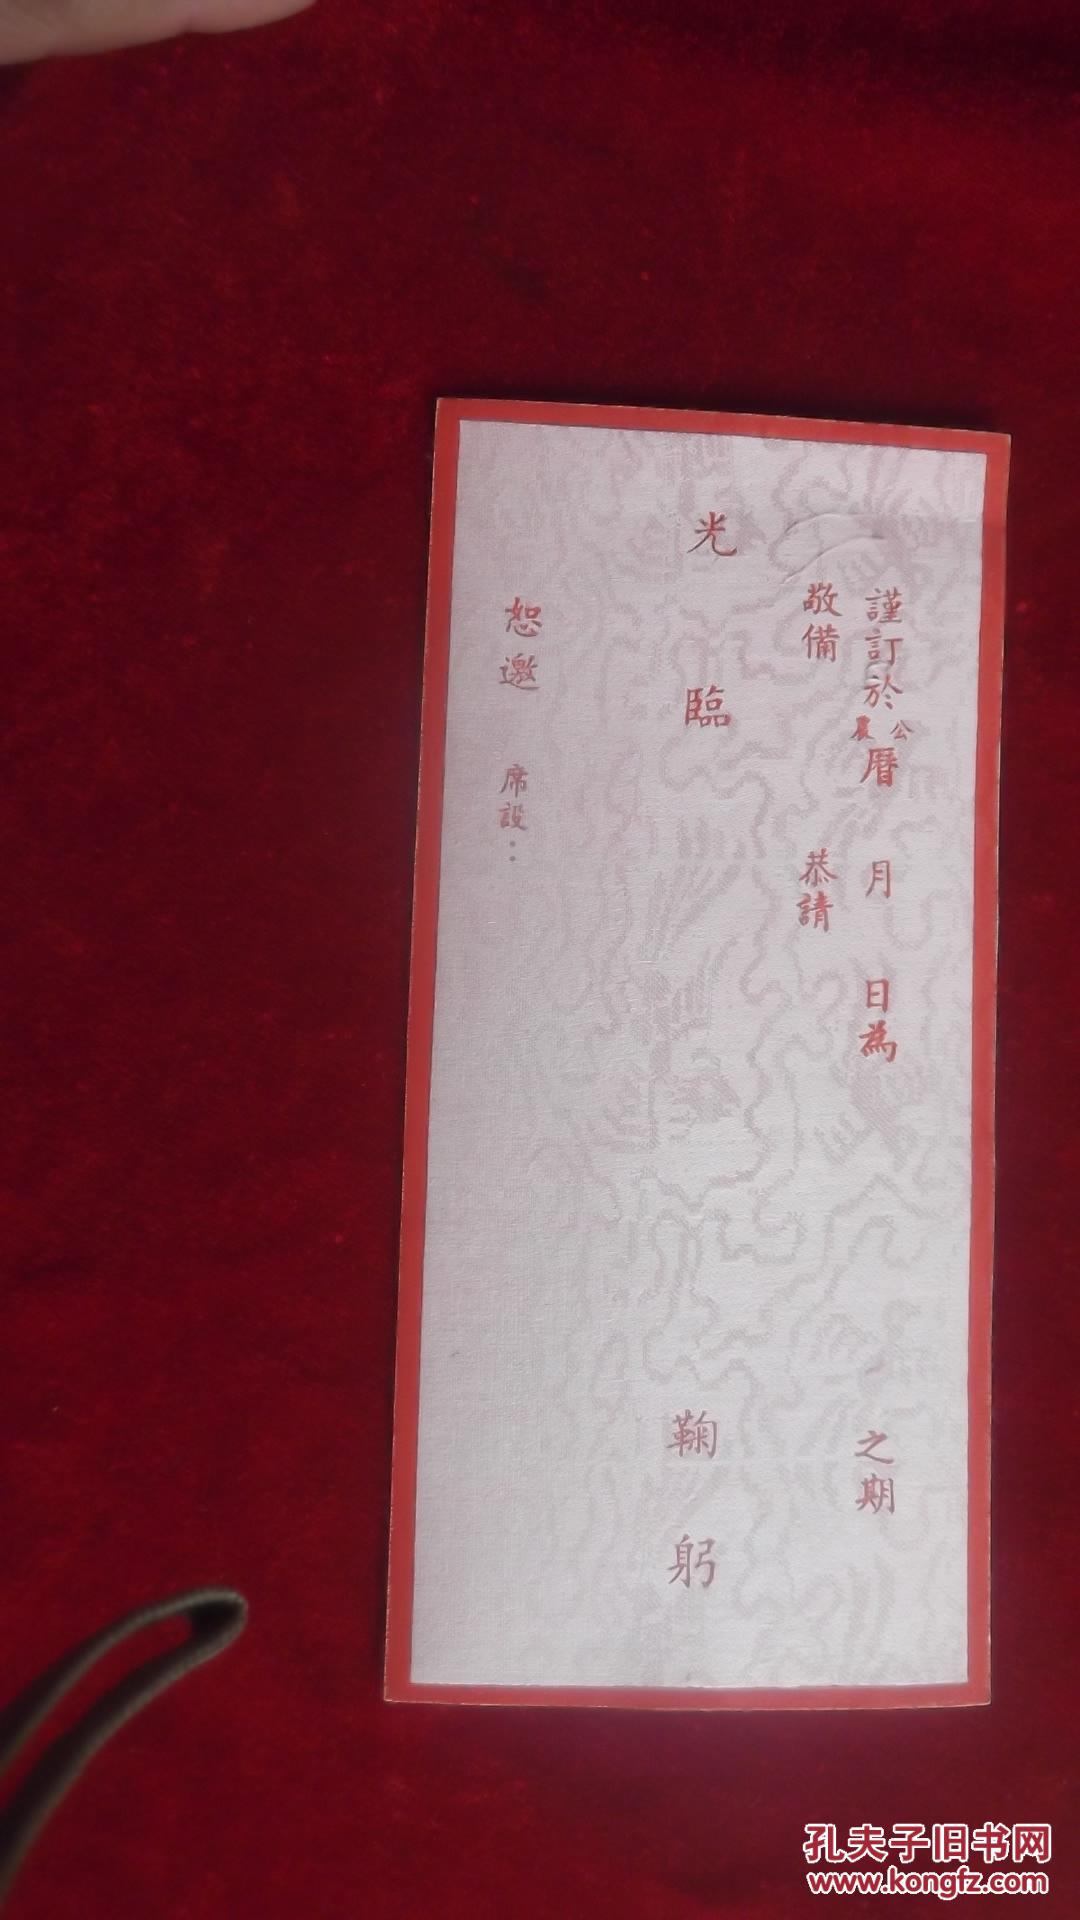 謹訂於公農曆 月 日為 之期
敬備 恭請
光臨 鞠躬
恕邀 席設：
孔夫子旧书网
www.kongfz.com